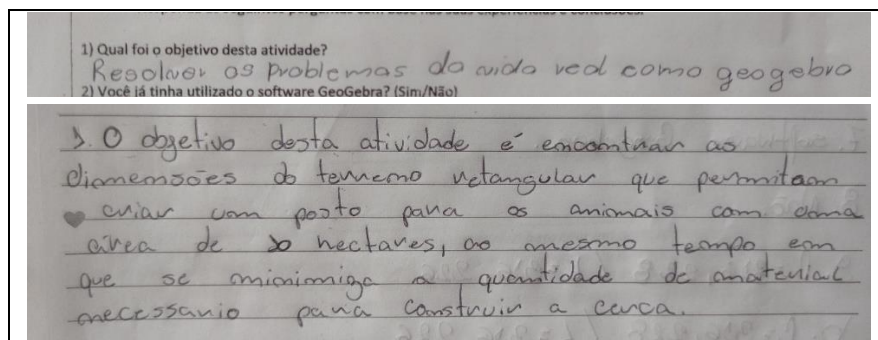 1) Qual foi o objetivo desta atividade?
Resolver os problemas da vida real como geogebra
2) Você já tinha utilizado o software GeoGebra? (Sim/Não)
1. O objetivo desta atividade é encontrar as
dimensões do terreno retangular que permitam
criar um pasto para os animais com uma
área de hectares, ao mesmo tempo em
que se minimiza a quantidade de material
necessario para construir a cerca.